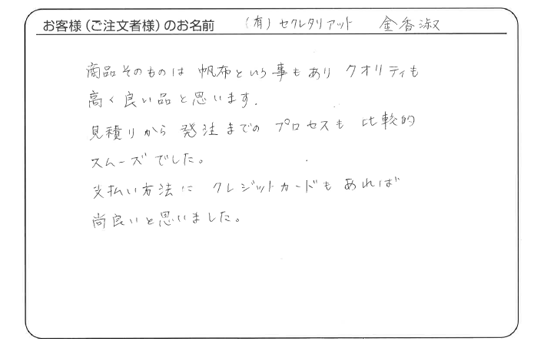 お客様（ご注文者様）のお名前 （有）セクレタリアット 金香淑
商品そのものは 帆布という事もあり クオリティも
高く良い品と思います.
見積りから 発注までの プロセスも 比較的
スムーズでした。
支払い方法に クレジットカードも あれば
尚良いと思いました。